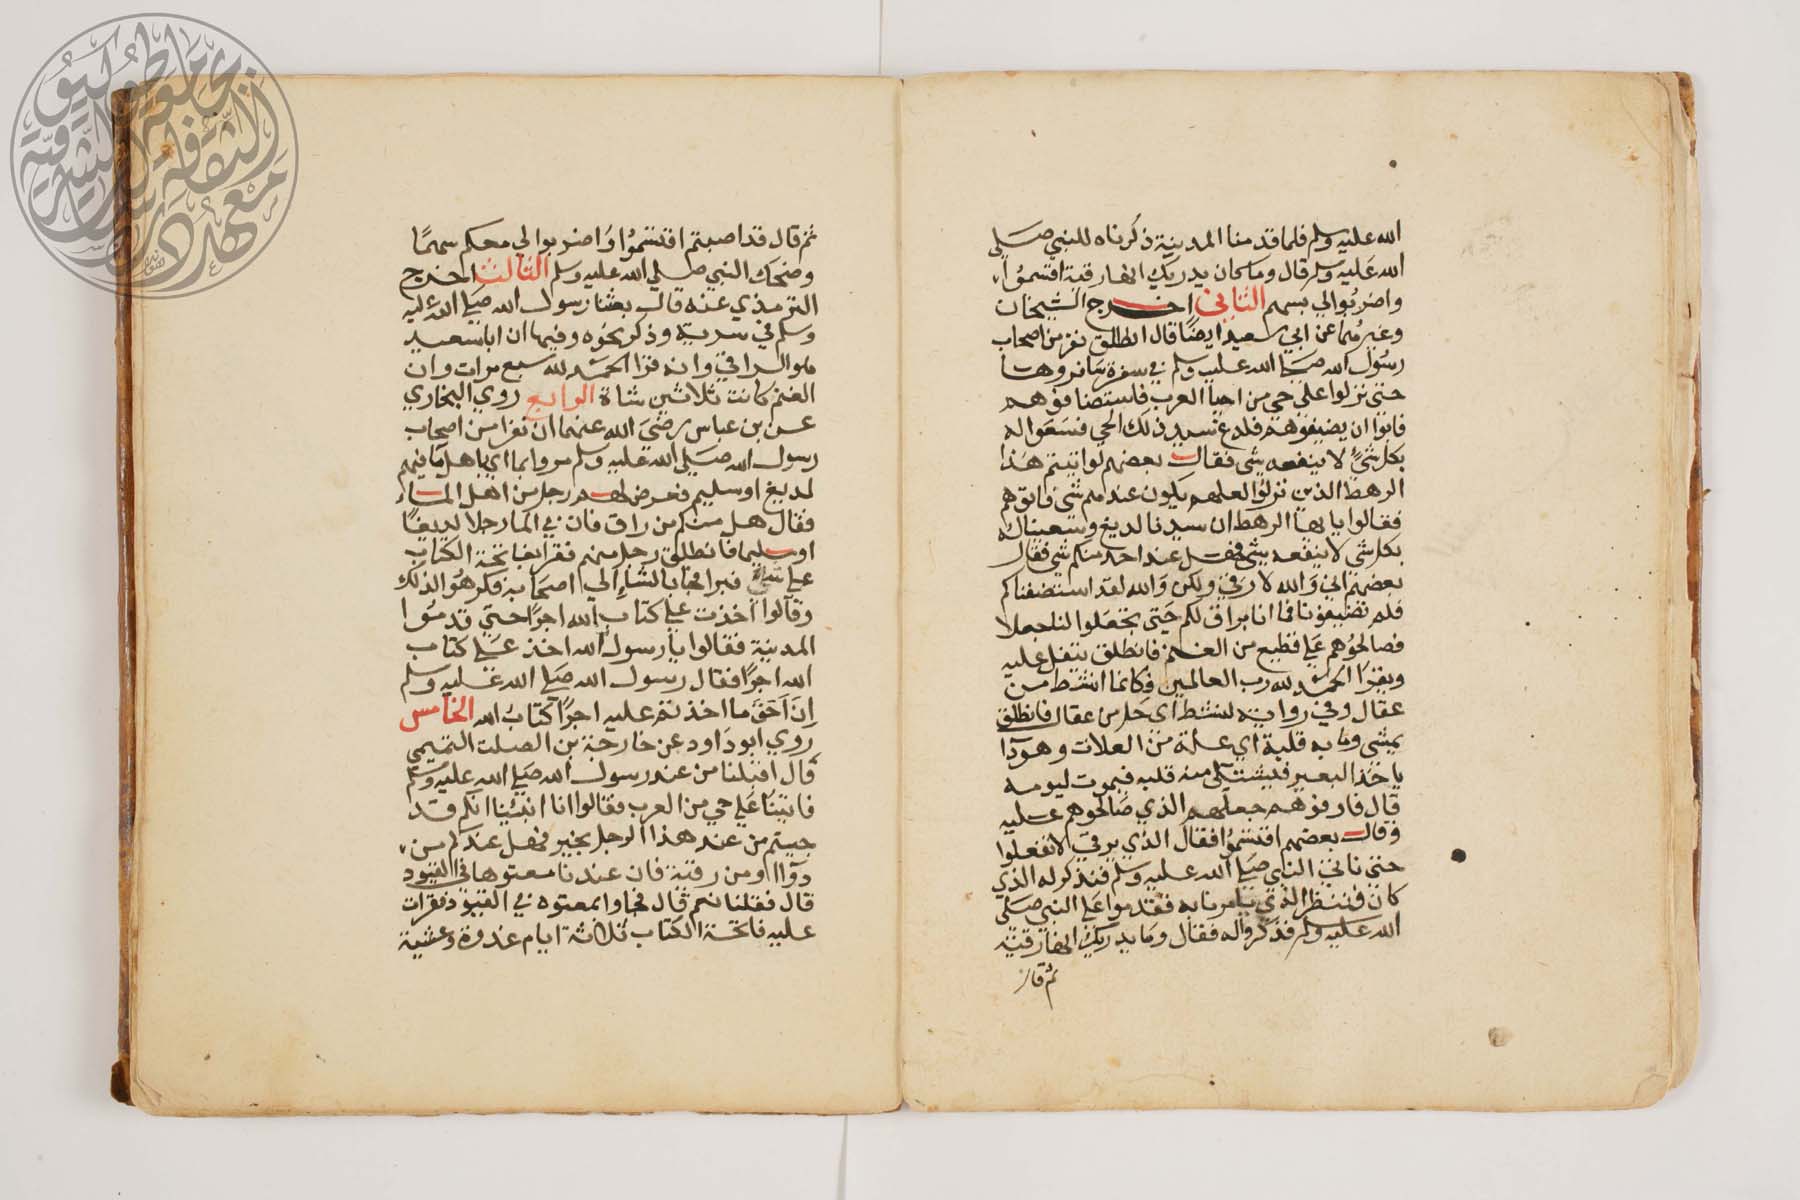 الله عليه وسلم فلما قدمنا المدينة ذكرناه للنبي صلى
الله عليه وسلم قال وما كان يدريك انها رقية اقتسموا
واضربوا لي بسهم الثاني اخرج الشيخان
وغيرهما عن ابي سعيد ايضا قال انطلق نفر من اصحاب
رسول الله صلى الله عليه وسلم في سفرة سافروها
حتى نزلوا على حي من احيا العرب فاستضافوهم
فابوا ان يضيفوهم فلدغ سيد ذلك الحي فسعوا له
بكل شيء لا ينفعه شي فقال بعضهم لو اتيتم هذا
الرهط الذين نزلوا لعلهم يكون عندهم شي فاتوهم
فقالوا يا ايها الرهط ان سيدنا لديغ وسعينا له
بكل شي لا ينفعه شي فهل عند احد منكم شي فقال
بعضهم اني والله لارقي ولكن والله لقد استضفناكم
فلم تضيفونا فما انا براق لكم حتى تجعلوا لنا جعلا
فصالحوهم على قطيع من الغنم فانطلق يتفل عليه
ويقرا الحمد لله رب العالمين فكانما انشط من
عقال وفي رواية لنشط اي حل من عقال فانطلق
يمشي وما به قلبة اي علة من العلات وهو دا
ياخذ البعير فيشتكي منه قلبه فيموت ليومه
قال فاوفوهم جعلهم الذي صالحوهم عليه
وقال بعضهم اقتسموا فقال الذي يرقي لا تفعلوا
حتى ناتي النبي صلى الله عليه وسلم فنذكر له الذي
كان فننظر الذي يامرنا به فقدموا على النبي صلى
الله عليه وسلم فذكروا له فقال وما يدريك انها رقية
ثم قال
ثم قال قد اصبتم اقتسموا واضربوا لي معكم سهما
وضحك النبي صلى الله عليه وسلم الثالث اخرج
الترمذي عنه قال بعثنا رسول الله صلى الله عليه
وسلم في سرية وذكر نحوه وفيها ان ابا سعيد
هو الراقي وانه قرا الحمد لله سبع مرات وان
الغنم كانت ثلاثين شاة الرابع روي البخاري
عن بن عباس رضي الله عنهما ان نفرا من اصحاب
رسول الله صلى الله عليه وسلم مروا بما اي باهل ما فيهم
لديغ او سليم فعرض لهم رجل من اهل الماء
فقال هل منكم من راق فان في الما رجلا لديغا
او سليما فانطلق رجل منهم فقرا بفاتحة الكتاب
على شاء فبرا فجا بالشاء الى اصحابه فكرهوا ذلك
وقالوا اخذت على كتاب الله اجرا حتى قدموا
المدينة فقالوا يا رسول الله اخذ على كتاب
الله اجرا فقال رسول الله صلى الله عليه وسلم
ان احق ما اخذتم عليه اجرا كتاب الله الخامس
روي ابو داود عن خارجة بن الصلت التميمي
قال اقبلنا من عند رسول الله صلى الله عليه وسلم
فاتينا على حي من العرب فقالوا انا انبئنا انكم قد
جيتم من عند هذا الرجل بخير فهل عندكم من
دوا او من رقية فان عندنا معتوها في القيود
قال فقلنا نعم قال فجاوا بمعتوه في القيود فقرات
عليه فاتحة الكتاب ثلاثة ايام غدوة وعشية